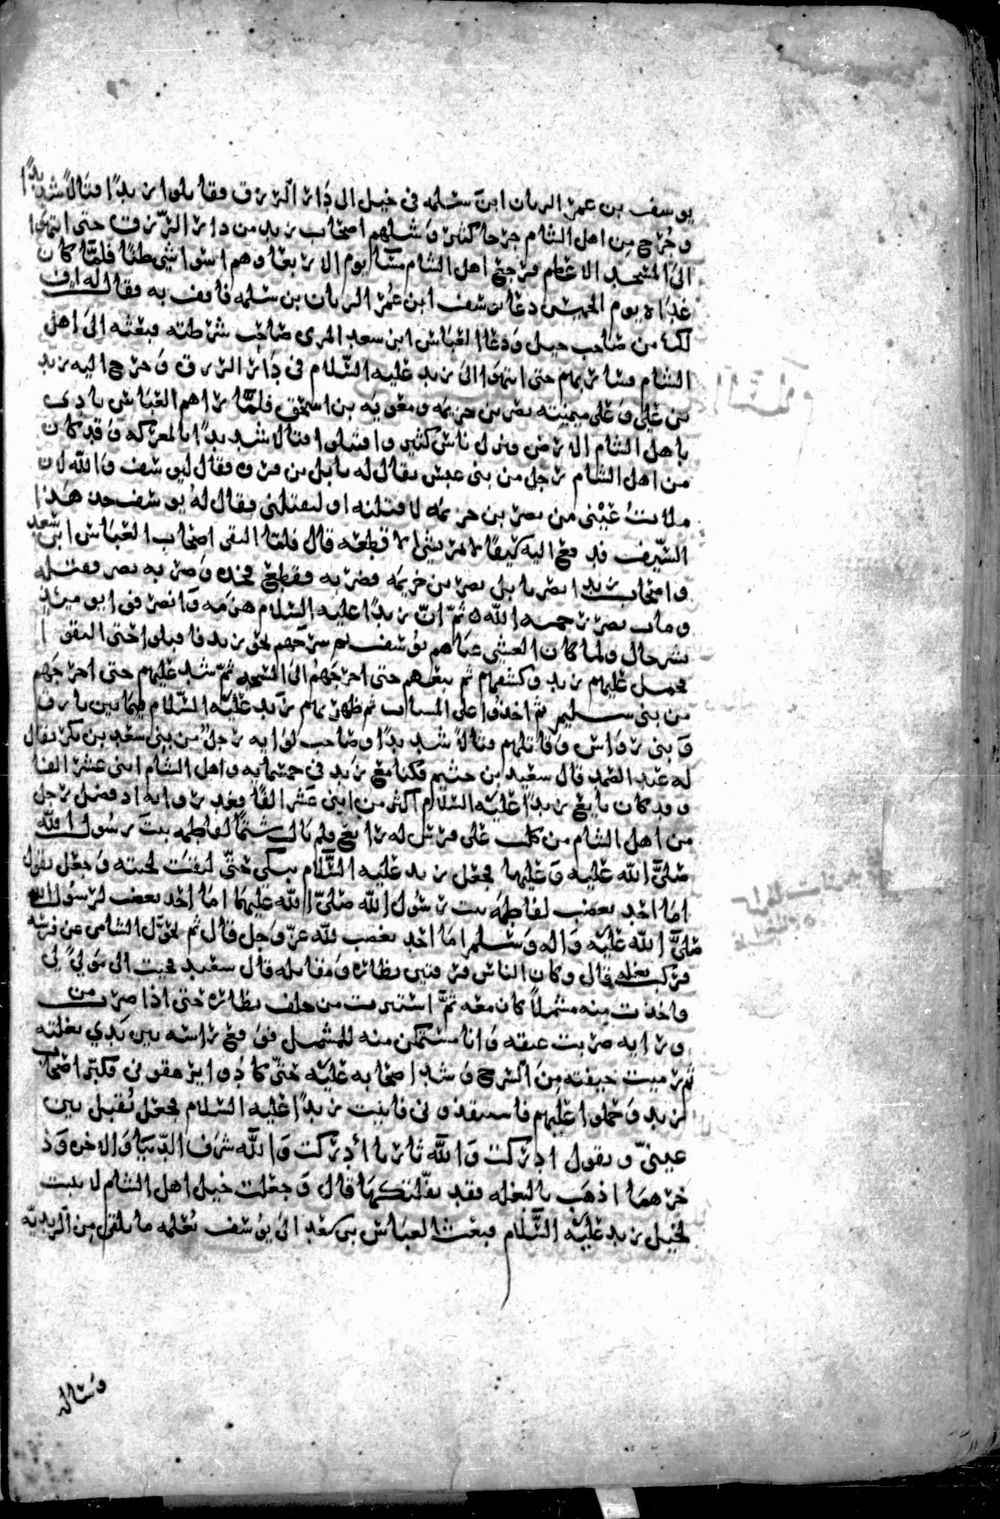 يوسف بن عمر الريان ابن سلمه في خيل الى دار الرزق فقاتلوا زيدًا قتالًا شديدًا
وخرج من اهل الشام جرحا كثير وشلهم اصحاب زيد من دار الرزق حتى انتهوا
الى المسجد الاعظم فرجع اهل الشام مساء يوم الاربعا وهم اسوا شي ظنًا فلما كان
غداة يوم الخميس دعا يوسف ابن عمر الريان بن سلمه فافف به فقال له اف
لك من صاحب خيل ودعا العباس ابن سعد المري صاحب شرطته فبعثه الى اهل
الشام فسار بهم حتى انتهوا الى زيد عليه السلام في دار الرزق وخرج اليه زيد
بن علي وعلى ميمنته نصر بن خزيمه ومعويه بن اسحق فلما راهم العباس نادى
يا هل الشام الارض ونزل ناس كثير واقتتلوا قتالا شديدًا بالمعركه وقد كان
من اهل الشام رجل من بني عبس يقال له نابل بن فروه فقال ليوسف والله لان
ملات عيني من نصر بن خزيمه لاقتلنه او ليقتلني فقال له يوسف خذ هذا
السيف فدفع اليه سيفًا لا يمر بشي الا قطعه قال فلما التقى اصحاب العباس ابن سعد
واصحاب زيد ابصر نابل نصر بن خزيمه فضربه فقطع فخذه وضربه نصر فقتله
ومات نصر رحمه الله ثم ان زيدًا عليه السلام هزمهم وانصرفوا يومئذ
بشر حال ولما كان العشي عباهم يوسف ثم سرحهم نحو زيد فاقبلوا حتى التقوا
فحمل عليهم زيد وكشفهم ثم تبعهم حتى اخرجهم الى السبخه ثم شد عليهم حتى اخرجهم
من بني سليم ثم اخذوا على المسناه ثم ظهر بهم زيد عليه السلام فيما بين بارق
وبني رواس وقاتلهم قتالًا شديدًا وصاحب لوايه رجل من بني سعد بن بكر يقال
له عبد الصمد قال سعيد بن خثيم فكنا مع زيد في خمسمايه واهل الشام اثني عشر الفا
وقد كان بايع زيدًا عليه السلام اكثر من اثني عشر الفًا فغدروا به اذ فصل رجل
من اهل الشام من كلب على فرس له رايع فلم يال شتمًا لفاطمه بنت رسول الله
صلى الله عليه وعليها فجعل زيد عليه السلام يبكي حتى ابتلت لحيته وجعل يقول
اما احد يغضب لفاطمه بنت رسول الله صلى الله عليهما اما احد يغضب لرسول الله
صلى الله عليه واله وسلم اما احد يغضب لله عز وجل قال ثم تحول الشامي عن فرسه
فركب بغله قال وكان الناس فرقتين نظاره ومقاتله قال سعيد فجيت الى مولى لي
واخذت منه مشملًا كان معه ثم استترت من خلف النظاره حتى اذا صرت من
ورايه ضربت عنقه وانا متمكن منه بالمشمل فوقع راسه بين يدي بغلته
ثم رميت جيفته من السرج وشد اصحابه عليه حتى كادوا يرهقوني فكبر اصحاب
زيد وحملوا عليهم فاستنقذوني فاتيت زيدًا عليه السلام فجعل يقبل بين
عيني ويقول ادركت والله ثارنا ادركت والله شرف الدنيا والاخره وذ
خرهما اذهب بالبغله فقد نفلتكها قال وجعلت خيل اهل الشام لا تثبت
لخيل زيد عليه السلام فبعث العباس بن سعد الى يوسف يعلمه ما يلقى من الزيديه
وساله